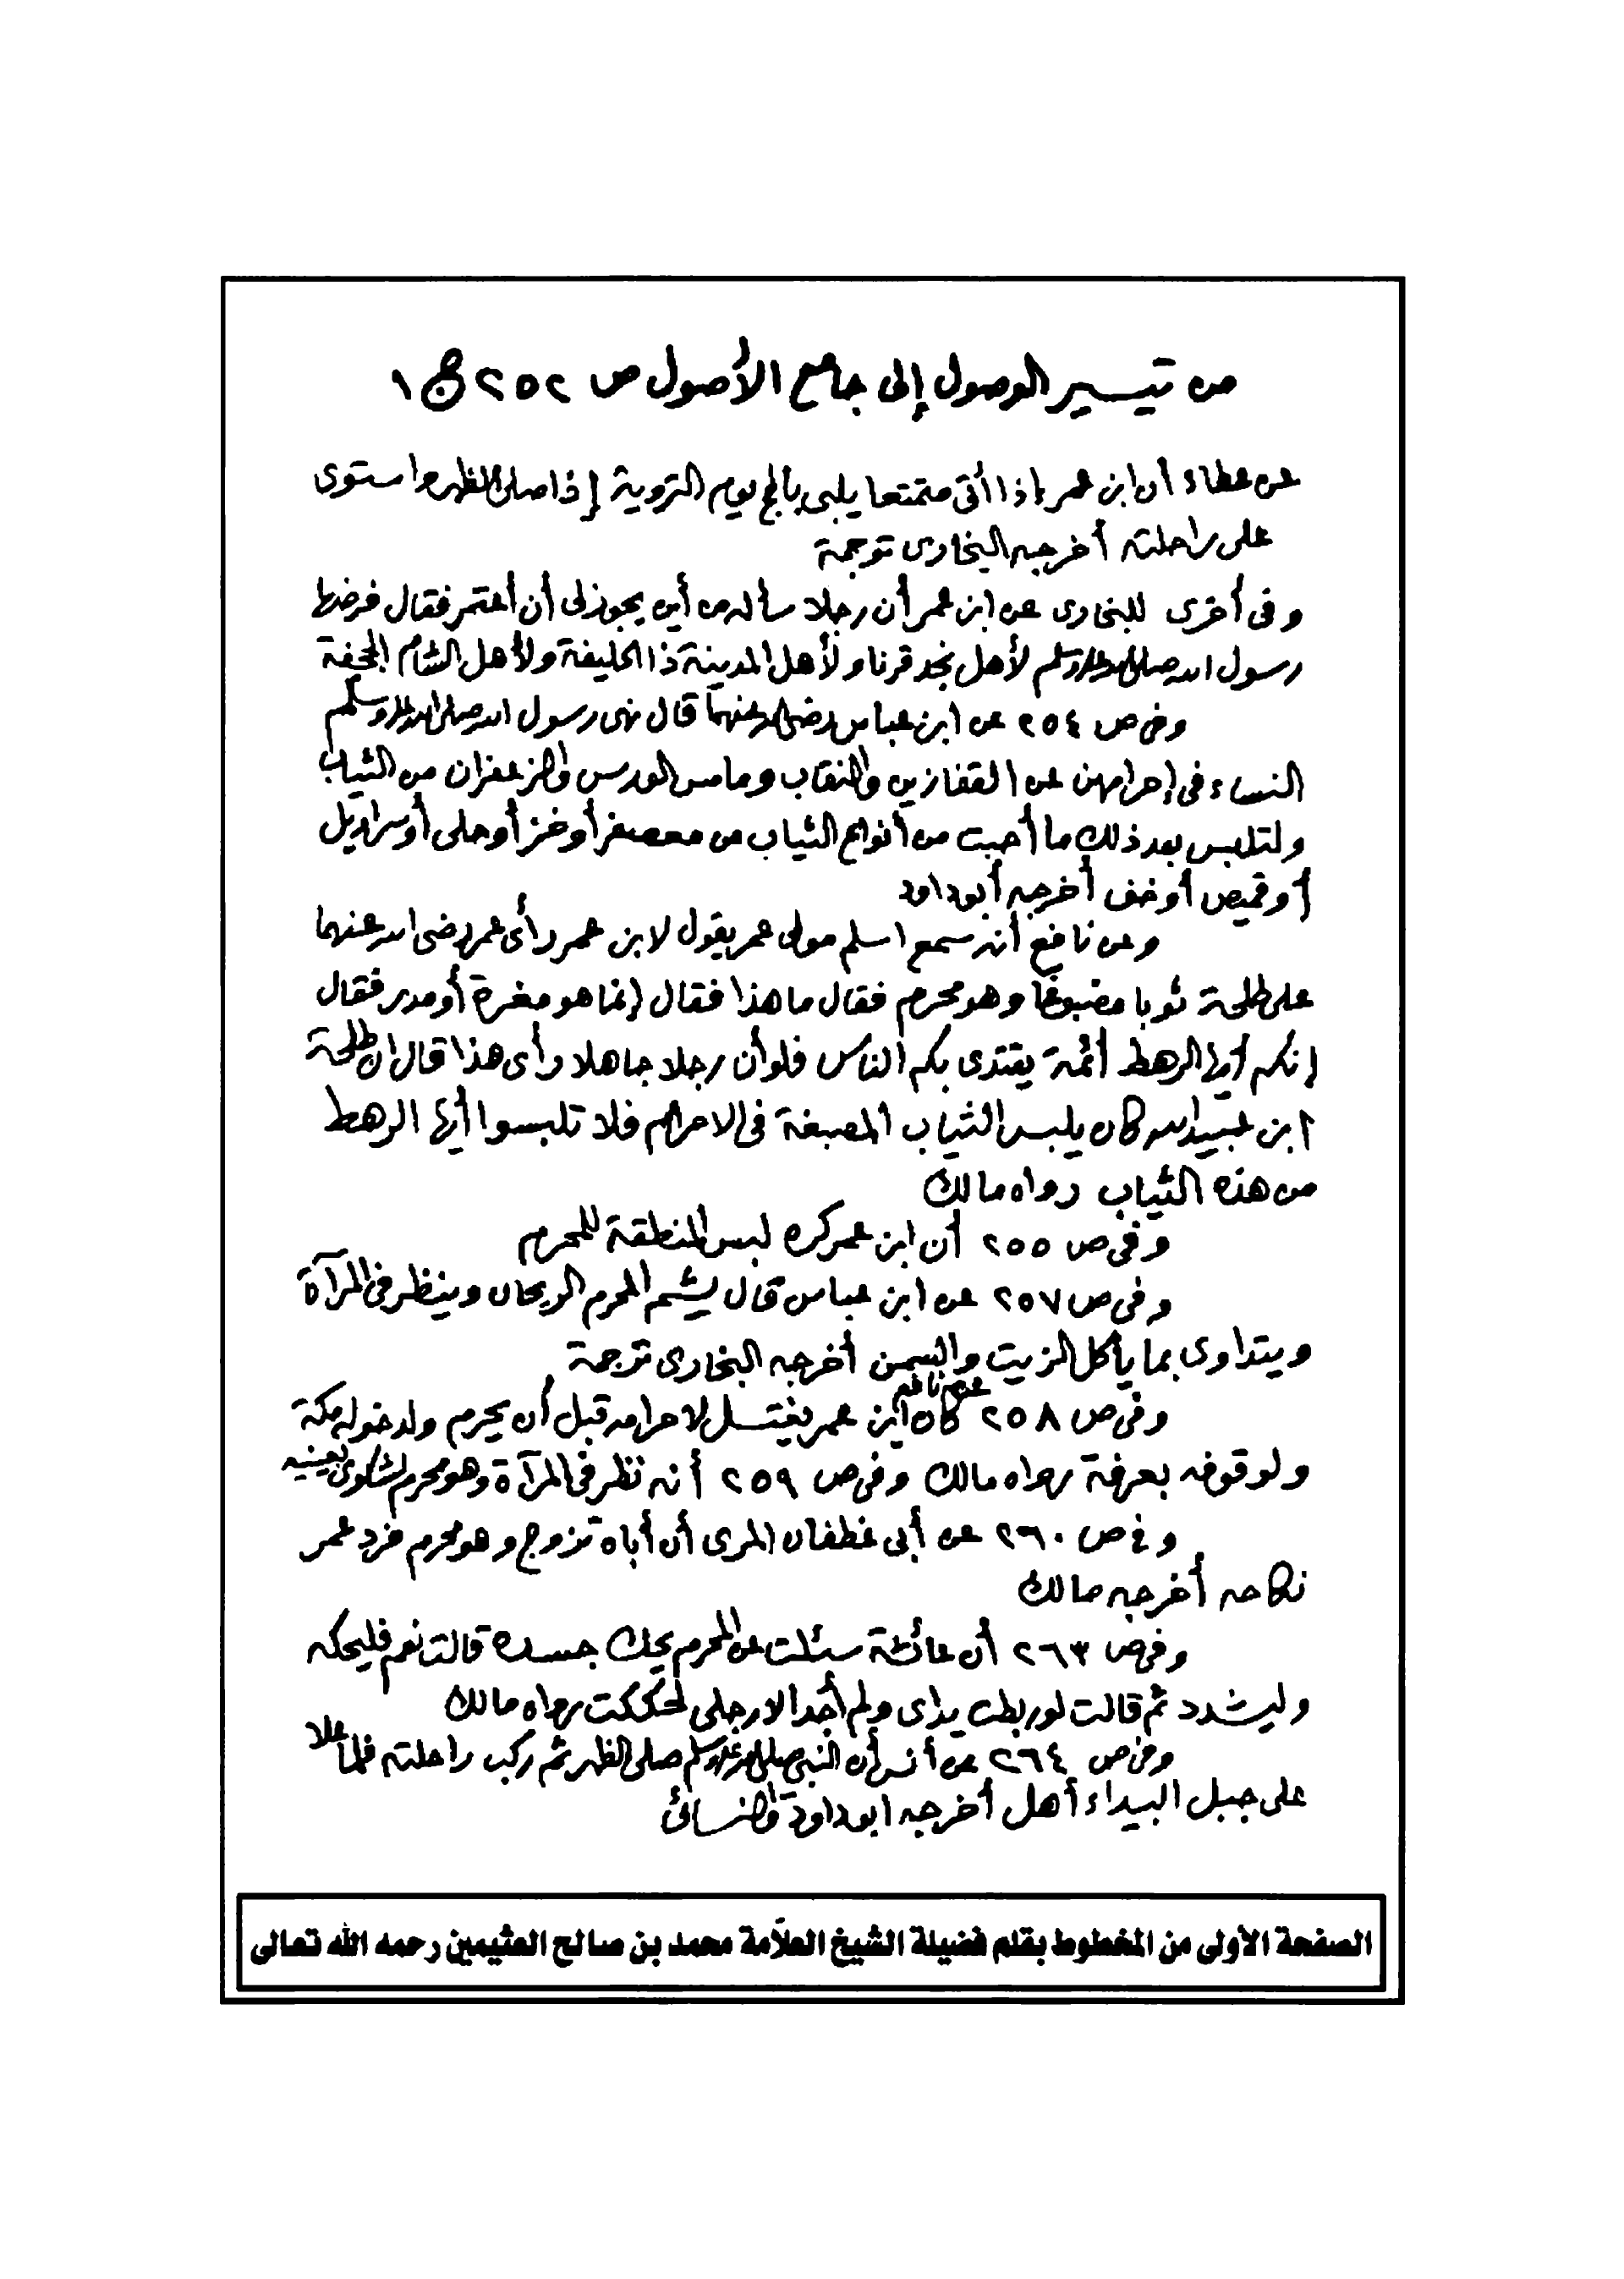 من تيسير الوصول إلى جامع الأصول ص ٢٥٢ ج ١
عن عطاء أن ابن عمر إذا أتى متمتعا يلبي بالحج يوم التروية إذا صلى الظهر واستوى
على راحلته أخرجه البخارى ترجمة
وفى أخرى للبخارى عن ابن عمر أن رجلا سأله من أين يجوز لى أن أعتمر فقال فرضها
رسول الله صلى الله عليه وسلم لأهل نجد قرنا ولأهل المدينة ذا الحليفة ولأهل الشام الجحفة
وفى ص ٢٥٤ عن ابن عباس رضى الله عنهما قال نهى رسول الله صلى الله عليه وسلم
النساء فى إحرامهن عن القفازين والنقاب وما مس الورس والزعفران من الثياب
ولتلبس بعد ذلك ما أحبت من أنواع الثياب من معصفر أو خز أو حلى أو سراويل
أو قميص أو خف أخرجه أبو داود
وعن نافع أنه سمع اسلم مولى عمر يقول لابن عمر رأى عمر رضى الله عنهما
على طلحة ثوبا مصبوغا وهو محرم فقال ما هذا فقال إنما هو مغرة أو مدر فقال
إنكم أيها الرهط أئمة يقتدى بكم الناس فلو أن رجلا جاهلا رأى هذا قال إن طلحة
ابن عبيد الله كان يلبس الثياب المصبغة فى الاحرام فلا تلبسوا أيها الرهط
من هذه الثياب رواه مالك
وفى ص ٢٥٥ أن ابن عمر كره لبس المنطقة للمحرم
وفى ص ٢٥٧ عن ابن عباس قال يشم المحرم الريحان وينظر فى المرآة
ويتداوى بما يأكل الزيت والسمن أخرجه البخارى ترجمة
وفى ص ٢٥٨ عن نافع كان ابن عمر يغتسل لاحرامه قبل أن يحرم ولدخوله مكة
ولوقوفه بعرفة رواه مالك وفى ص ٢٥٩ أنه نظر فى المرآة وهو محرم لشكوى بعينيه
وفى ص ٢٦٠ عن أبى غطفان المرى أن أباه تزوج وهو محرم فرد عمر
نكاحه أخرجه مالك
وفى ص ٢٦٣ أن عائشة سئلت عن المحرم يحك جسده قالت نعم فليحكه
وليشدد ثم قالت لو ربطت يداى ولم أجد الا رجلى لحككت رواه مالك
وفى ص ٢٦٤ عن أنس أن النبى صلى الله عليه وسلم صلى الظهر ثم ركب راحلته فلما علا
على جبل البيداء أهل أخرجه ابو داود والنسائى
الصفحة الأولى من المخطوط بقلم فضيلة الشيخ العلاّمة محمد بن صالح العثيمين رحمه الله تعالى